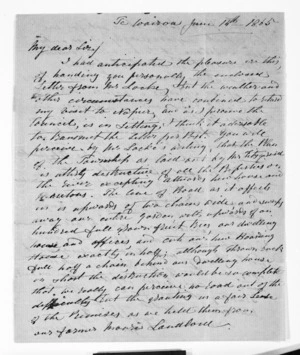 Te Wairoa June 14th 1865
My dear Sir/
I had anticipated the pleasure ere this
of handing you personally the enclosed
Letter from Mr Locke. But the weather and
other circumstances have continued to retard
my visit to Napier, and as I perceive the
Council is on Sitting, I think it advisable
to transmit the Letter per Post. You will
perceive by Mr Locke's writing, that the Plan
of the Township as laid out by Mr Fitzgerald
is utterly destructive of all the Properties on
the river excepting
. The line of Road as it affects
us is upwards of two chains wide, and sweeps
away our entire Garden with upwards of one
hundred full grown fruit trees, our dwelling
house and offices and cuts our new Boarding
House exactly in half, although thrown back
full half a chain from our Dwelling house
in short the destruction would be so complete
that we really can perceive no road out of the
difficulty but the granting us a fair Lease
of the Premises as we held them from
our former Maori Landlord.